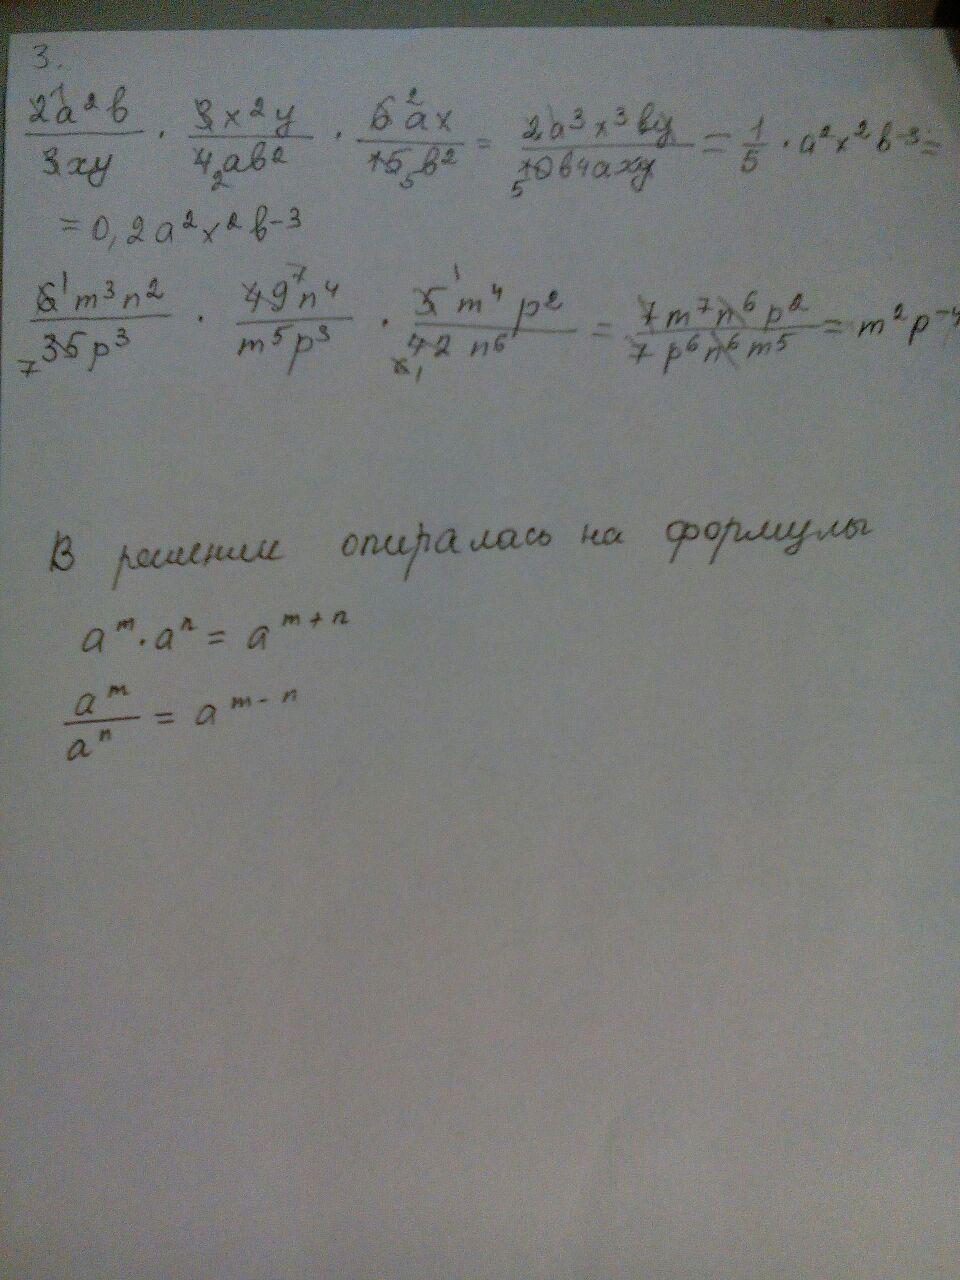 3.
2¹a²b/3xy · 3x²y/4₂ab² · 6²ax/15₅b² = 2a³x³by/10₅b4axy = 1/5 · a²x²b⁻³ =
= 0,2a²x²b⁻³
6¹m³n²/₇35p³ · 49⁷n⁴/m⁵p³ · 5¹m⁴p²/42₁n⁶ = 7m⁷n⁶p²/7p⁶n⁶m⁵ = m²p⁻⁴
В решении опиралась на формулы
aᵐ · aⁿ = aᵐ⁺ⁿ
aᵐ/aⁿ = aᵐ⁻ⁿ